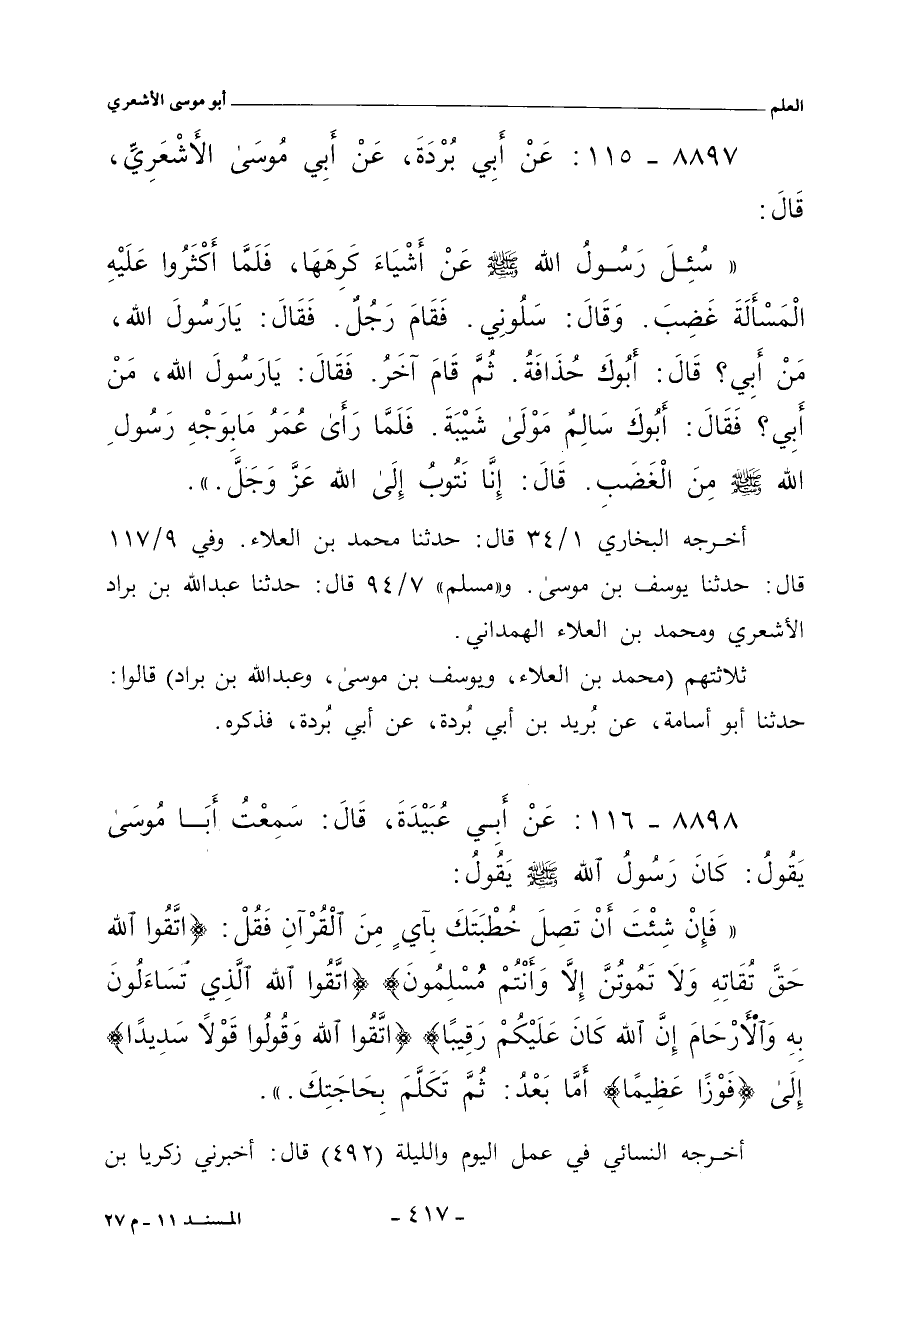 العلم ــــــــــــــــــــــــــــــــ أبو موسى الأشعري
٨٨٩٧ - ١١٥ : عَنْ أَبِي بُرْدَةَ، عَنْ أَبِي مُوسَىٰ الأَشْعَرِيِّ،
قَالَ:
« سُئِـلَ رَسُـولُ الله ﷺ عَنْ أَشْيَاءَ كَرِهَهَا، فَلَمَّا أَكْثَرُوا عَلَيْهِ
الْمَسْأَلَةَ غَضِبَ. وَقَالَ: سَلُونِي. فَقَامَ رَجُلٌ. فَقَالَ: يَارَسُولَ الله،
مَنْ أَبِي؟ قَالَ: أَبُوكَ حُذَافَةُ. ثُمَّ قَامَ آخَرُ. فَقَالَ: يَارَسُولَ الله، مَنْ
أَبِي؟ فَقَالَ: أَبُوكَ سَالِمٌ مَوْلَىٰ شَيْبَةَ. فَلَمَّا رَأَىٰ عُمَرُ مَابِوَجْهِ رَسُولِ
الله ﷺ مِنَ الْغَضَبِ. قَالَ: إِنَّا نَتُوبُ إِلَىٰ الله عَزَّ وَجَلَّ.».
أخـرجه البخاري ٣٤/١ قال: حدثنا محمد بن العلاء. وفي ١١٧/٩
قال: حدثنا يوسف بن موسىٰ. و«مسلم» ٩٤/٧ قال: حدثنا عبدالله بن براد
الأشعري ومحمد بن العلاء الهمداني.
ثلاثتهم (محمد بن العلاء، ويوسف بن موسىٰ، وعبدالله بن براد) قالوا:
حدثنا أبو أسامة، عن بُريد بن أبي بُردة، عن أبي بُردة، فذكره.
٨٨٩٨ - ١١٦ : عَنْ أَبِـي عُبَيْدَةَ، قَالَ: سَمِعْتُ أَبَـا مُوسَىٰ
يَقُولُ: كَانَ رَسُولُ ٱلله ﷺ يَقُولُ:
« فَإِنْ شِئْتَ أَنْ تَصِلَ خُطْبَتَكَ بِآيٍ مِنَ ٱلْقُرْآنِ فَقُلْ: ﴿اتَّقُوا ٱلله
حَقَّ تُقَاتِهِ وَلَا تَمُوتُنَّ إِلَّا وَأَنْتُمْ مُسْلِمُونَ﴾ ﴿اتَّقُوا الله ٱلَّذِي تَسَاءَلُونَ
بِهِ وَٱلْأَرْحَامَ إِنَّ ٱلله كَانَ عَلَيْكُمْ رَقِيبًا﴾ ﴿اتَّقُوا الله وَقُولُوا قَوْلًا سَدِيدًا﴾
إِلَىٰ ﴿فَوْزًا عَظِيمًا﴾ أَمَّا بَعْدُ: ثُمَّ تَكَلَّمَ بِحَاجَتِكَ.».
أخـرجه النسائي في عمل اليوم والليلة (٤٩٢) قال: أخبرني زكريا بن
- ٤١٧ -
المسند ١١ - م ٢٧